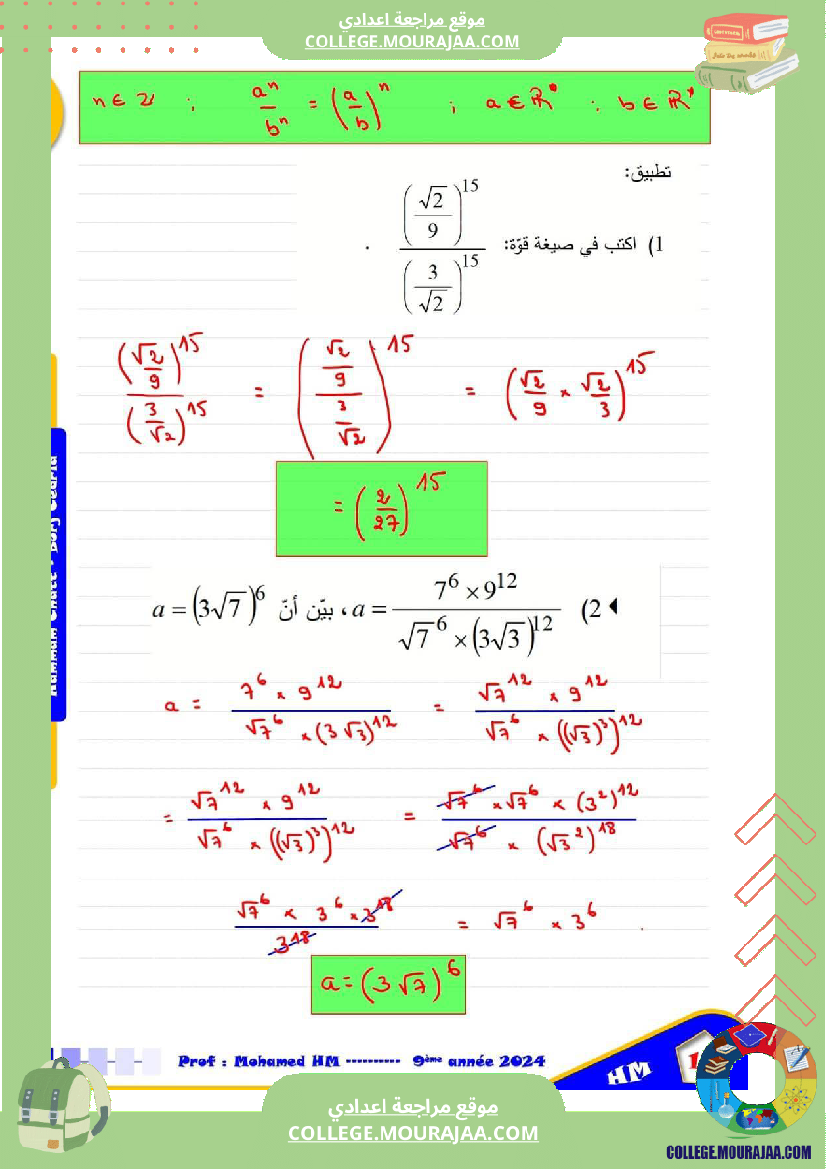 موقع مراجعة اعدادي
COLLEGE.MOURAJAA.COM
n ∈ ℤ ; aⁿ/bⁿ = (a/b)ⁿ ; a ∈ ℝ* ; b ∈ ℝ*
تطبيق:
1) اكتب في صيغة قوّة: (√2/9)^15 / (3/√2)^15 .
(√2/9)^15 / (3/√2)^15 = ((√2/9) / (3/√2))^15 = (√2/9 × √2/3)^15
= (2/27)^15
2) a = (7^6 × 9^12) / (√7^6 × (3√3)^12) ، بيّن أنّ a = (3√7)^6
a = (7^6 × 9^12) / (√7^6 × (3√3)^12) = (√7^12 × 9^12) / (√7^6 × ((√3)^3)^12)
= (√7^12 × 9^12) / (√7^6 × ((√3)^3)^12) = (√7^6 × √7^6 × (3^2)^12) / (√7^6 × (√3^2)^18)
(√7^6 × 3^6 × 3^18) / 3^18 = √7^6 × 3^6
a = (3√7)^6
Prof : Mohamed HM ---------- 9ème année 2024
HM
موقع مراجعة اعدادي
COLLEGE.MOURAJAA.COM
COLLEGE.MOURAJAA.COM